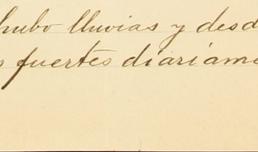 hubo lluvias y desd
s fuertes diariame